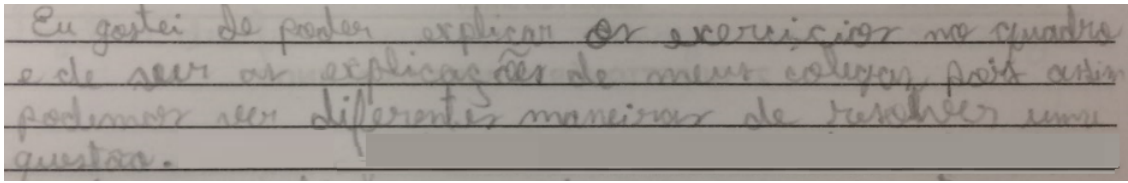 Eu gostei de poder explicar os exercicios no quadro
e de ver as explicações de meus colegas, pois assim
podemos ver diferentes maneiras de resolver uma
questão.